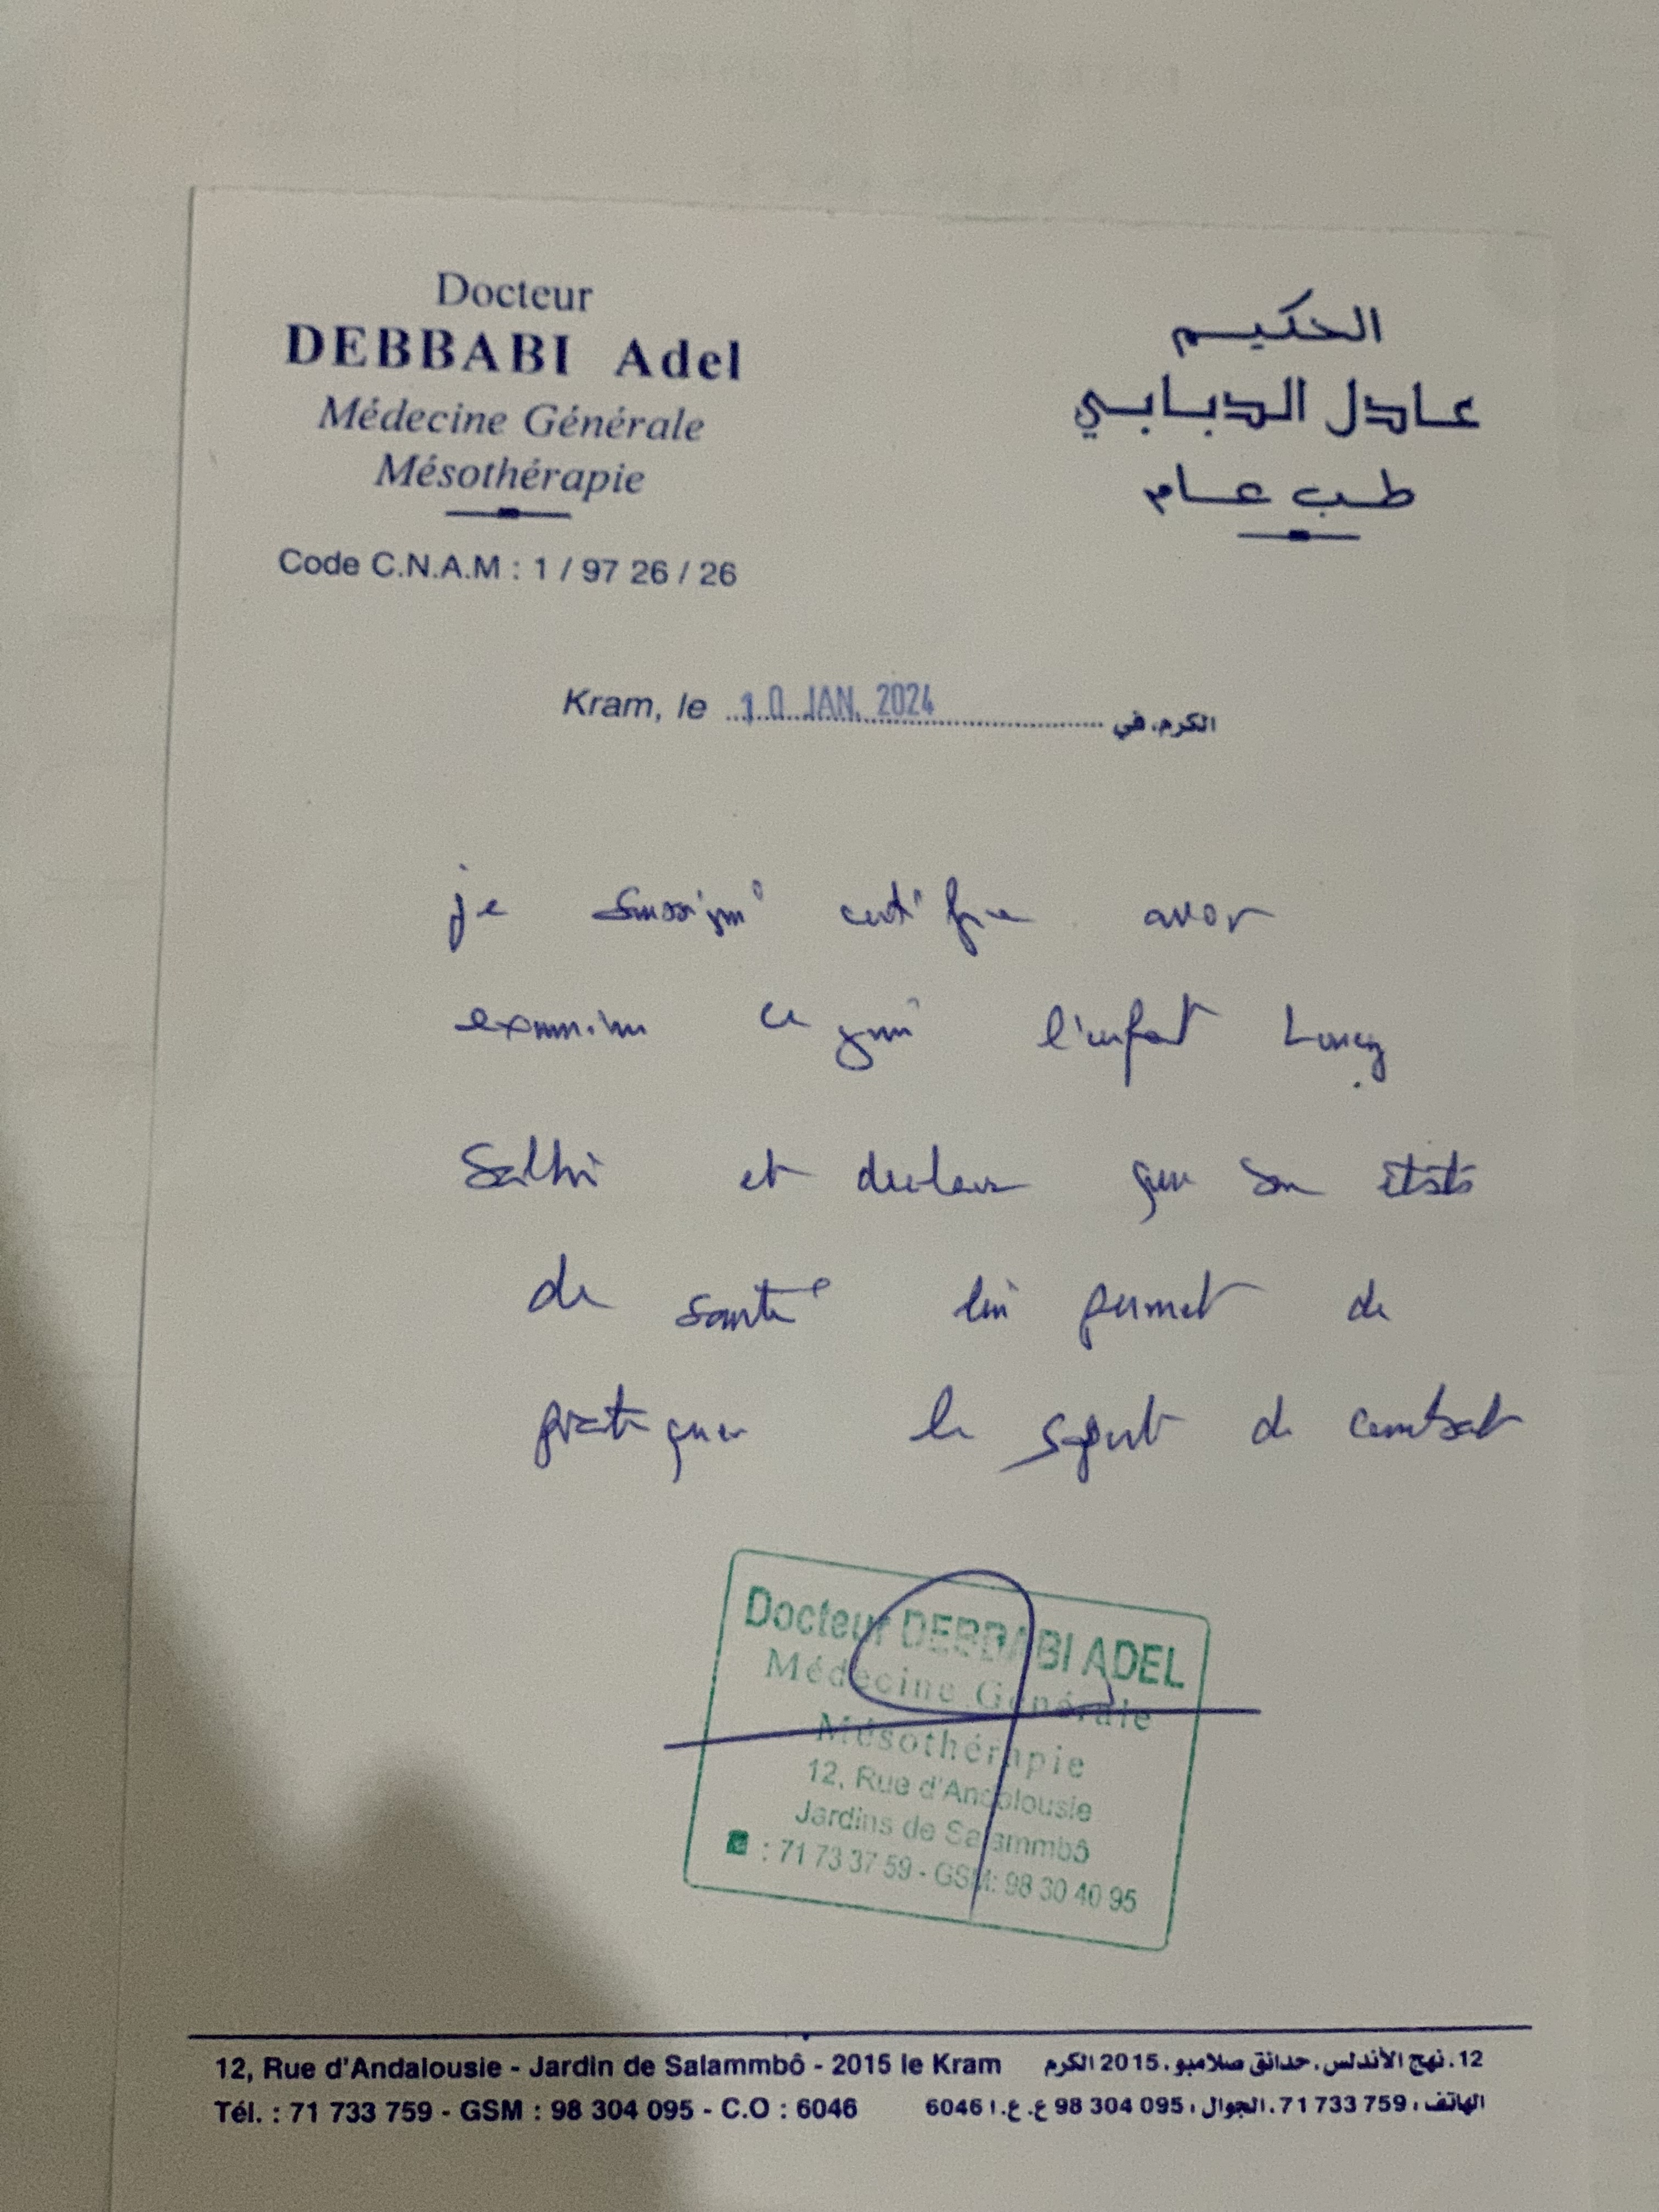 Docteur
DEBBABI Adel
Médecine Générale
Mésothérapie
Code C.N.A.M : 1 / 97 26 / 26
الحكيم
عادل الدبابي
طب عام
Kram, le 10 JAN. 2024 الكرم، في
je soussigné certifie avoir
examiné ce jour l'enfant
Salhi et declare que son état
de santé lui permet de
pratiquer le sport de combat
Docteur DEBBABI ADEL
Médecine Générale
Mésothérapie
12, Rue d'Andalousie
Jardins de Salammbô
☎ : 71 73 37 59 - GSM: 98 30 40 95
12, Rue d'Andalousie - Jardin de Salammbô - 2015 le Kram
12، نهج الأندلس، حدائق صلامبو، 2015 الكرم
Tél. : 71 733 759 - GSM : 98 304 095 - C.O : 6046
الهاتف : 71 733 759، الجوال : 98 304 095 ع.ع.ا 6046